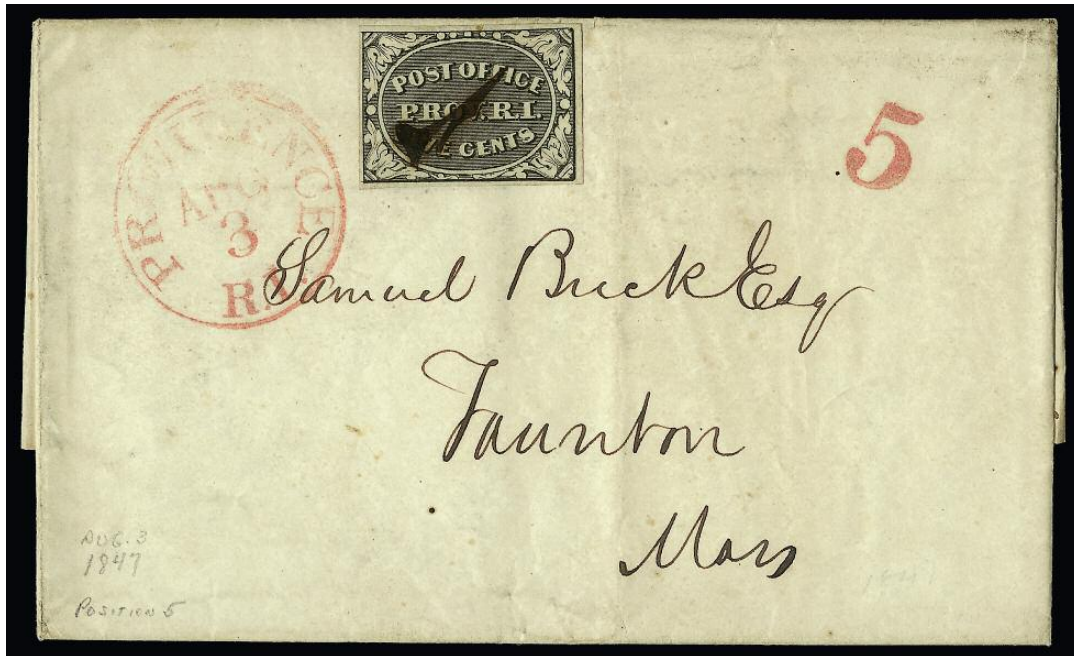 POST OFFICE
PROV. R.I.
CENTS
PROVIDENCE
AUG
3
R.I.
5
Samuel Buck Esq
Taunton
Mass
AUG. 3
1847
POSITION 5